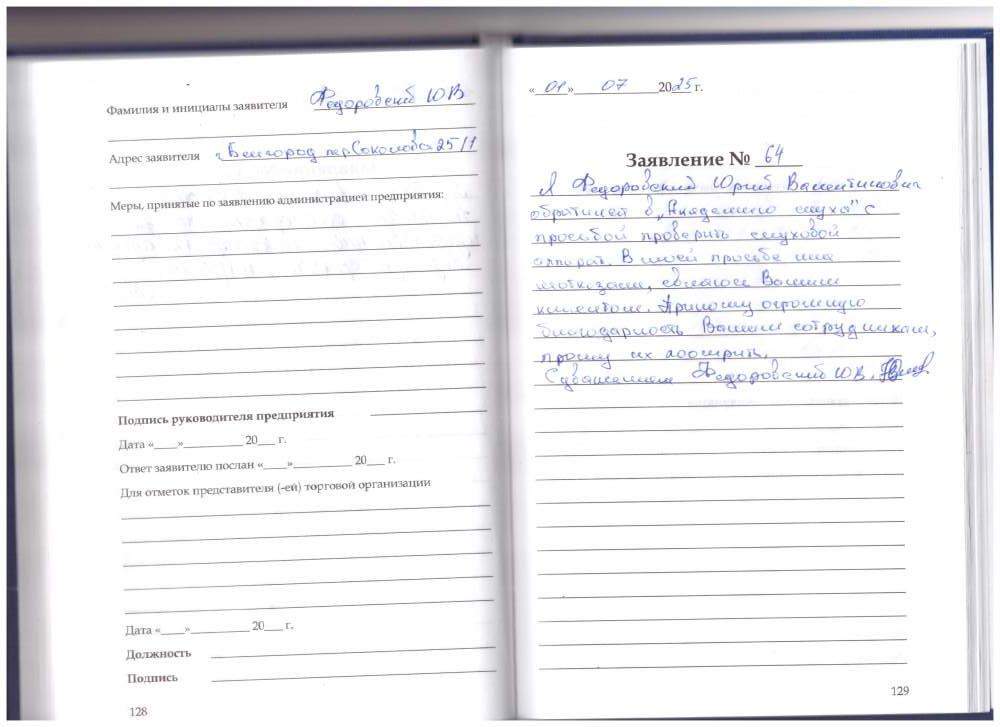 Фамилия и инициалы заявителя Федоровский Ю В
Адрес заявителя г. Белгород пер. Соколова 25/1
Меры, принятые по заявлению администрацией предприятия:
Подпись руководителя предприятия
Дата «___»__________ 20___ г.
Ответ заявителю послан «___»__________ 20___ г.
Для отметок представителя (-ей) торговой организации
Дата «___»__________ 20___ г.
Должность
Подпись
128
« 01 » 07 2025 г.
Заявление № 64
Я Федоровский Юрий Валентинович
обратился в „Академию слуха" с
просьбой проверить слуховой
аппарат. В моей просьбе мне
не отказали, Вашим
клиентом. Приношу огромную
благодарность Вашим сотрудникам,
прошу их поощрить.
С уважением Федоровский Ю.В.
129